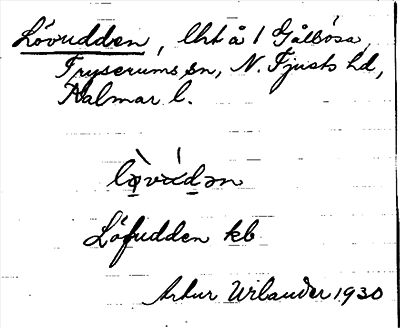 Lövudden, lht å 1 Gålösa,
Tryserums sn, N. Tjusts hd,
Kalmar l.
Löfudden kb
Artur Urlander 1930